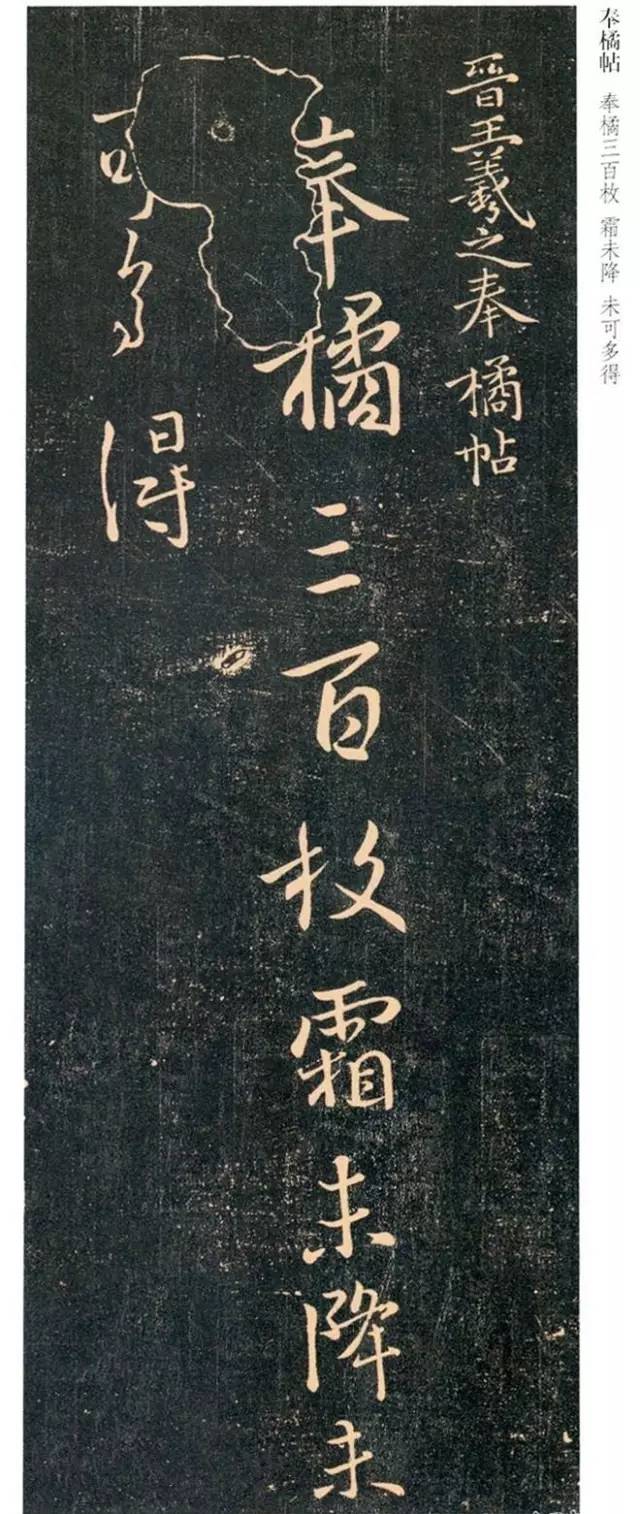 奉橘帖 奉橘三百枚 霜未降 未可多得
晉王羲之奉橘帖
奉橘三百枚霜未降未
可多得